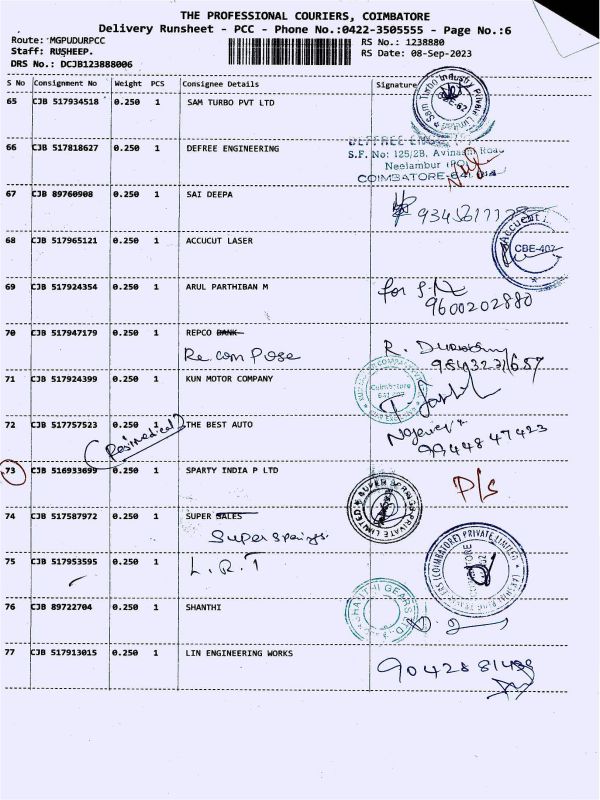 THE PROFESSIONAL COURIERS, COIMBATORE
Delivery Runsheet - PCC - Phone No.:0422-3505555 - Page No.:6
Route: MGPUDURPCC
RS No.: 1238880
Staff: RUSHEEP.
RS Date: 08-Sep-2023
DRS No.: DCJB123888006
S No Consignment No Weight PCS Consignee Details Signature
65 CJB 517934518 0.250 1 SAM TURBO PVT LTD
66 CJB 517818627 0.250 1 DEFREE ENGINEERING
S.F. No: 125/2B, Avinashi Road
Neelambur (PO)
COIMBATORE-641
67 CJB 89760908 0.250 1 SAI DEEPA
68 CJB 517965121 0.250 1 ACCUCUT LASER
CBE-407
69 CJB 517924354 0.250 1 ARUL PARTHIBAN M
for
9600202880
70 CJB 517947179 0.250 1 REPCO BANK
Re com Pose
R.
71 CJB 517924399 0.250 1 KUN MOTOR COMPANY
Coimbatore
72 CJB 517757523 0.250 1 THE BEST AUTO
9944847423
73 CJB 516933699 0.250 1 SPARTY INDIA P LTD
P/s
74 CJB 517587972 0.250 1 SUPER SALES
Super springs
SUPER SPRINGS PRIVATE LIMITED
75 CJB 517953595 0.250 1 L.R.T
(COIMBATORE) PRIVATE LIMITED
76 CJB 89722704 0.250 1 SHANTHI
SHANTHI GEARS LTD
77 CJB 517913015 0.250 1 LIN ENGINEERING WORKS